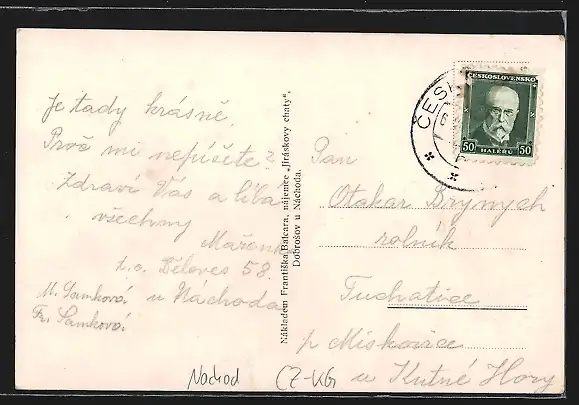 Je tady krásně.
Proč mi nepíšete?
Zdraví Vás a líbá
všechny
Mařenka
t.č. Běloves 58.
u Náchoda
M. Samková
Fr. Samková.
Nákladem Františka Balcara, nájemce „Jiráskovy chaty",
Dobrošov u Náchoda.
ČESK
ČESKOSLOVENSKO
50 HALÉŘŮ 50
Pan
Otakar Brynych
rolník
Tuchotice
p Miskovice
u Kutné Hory
Nachod
CZ-KG